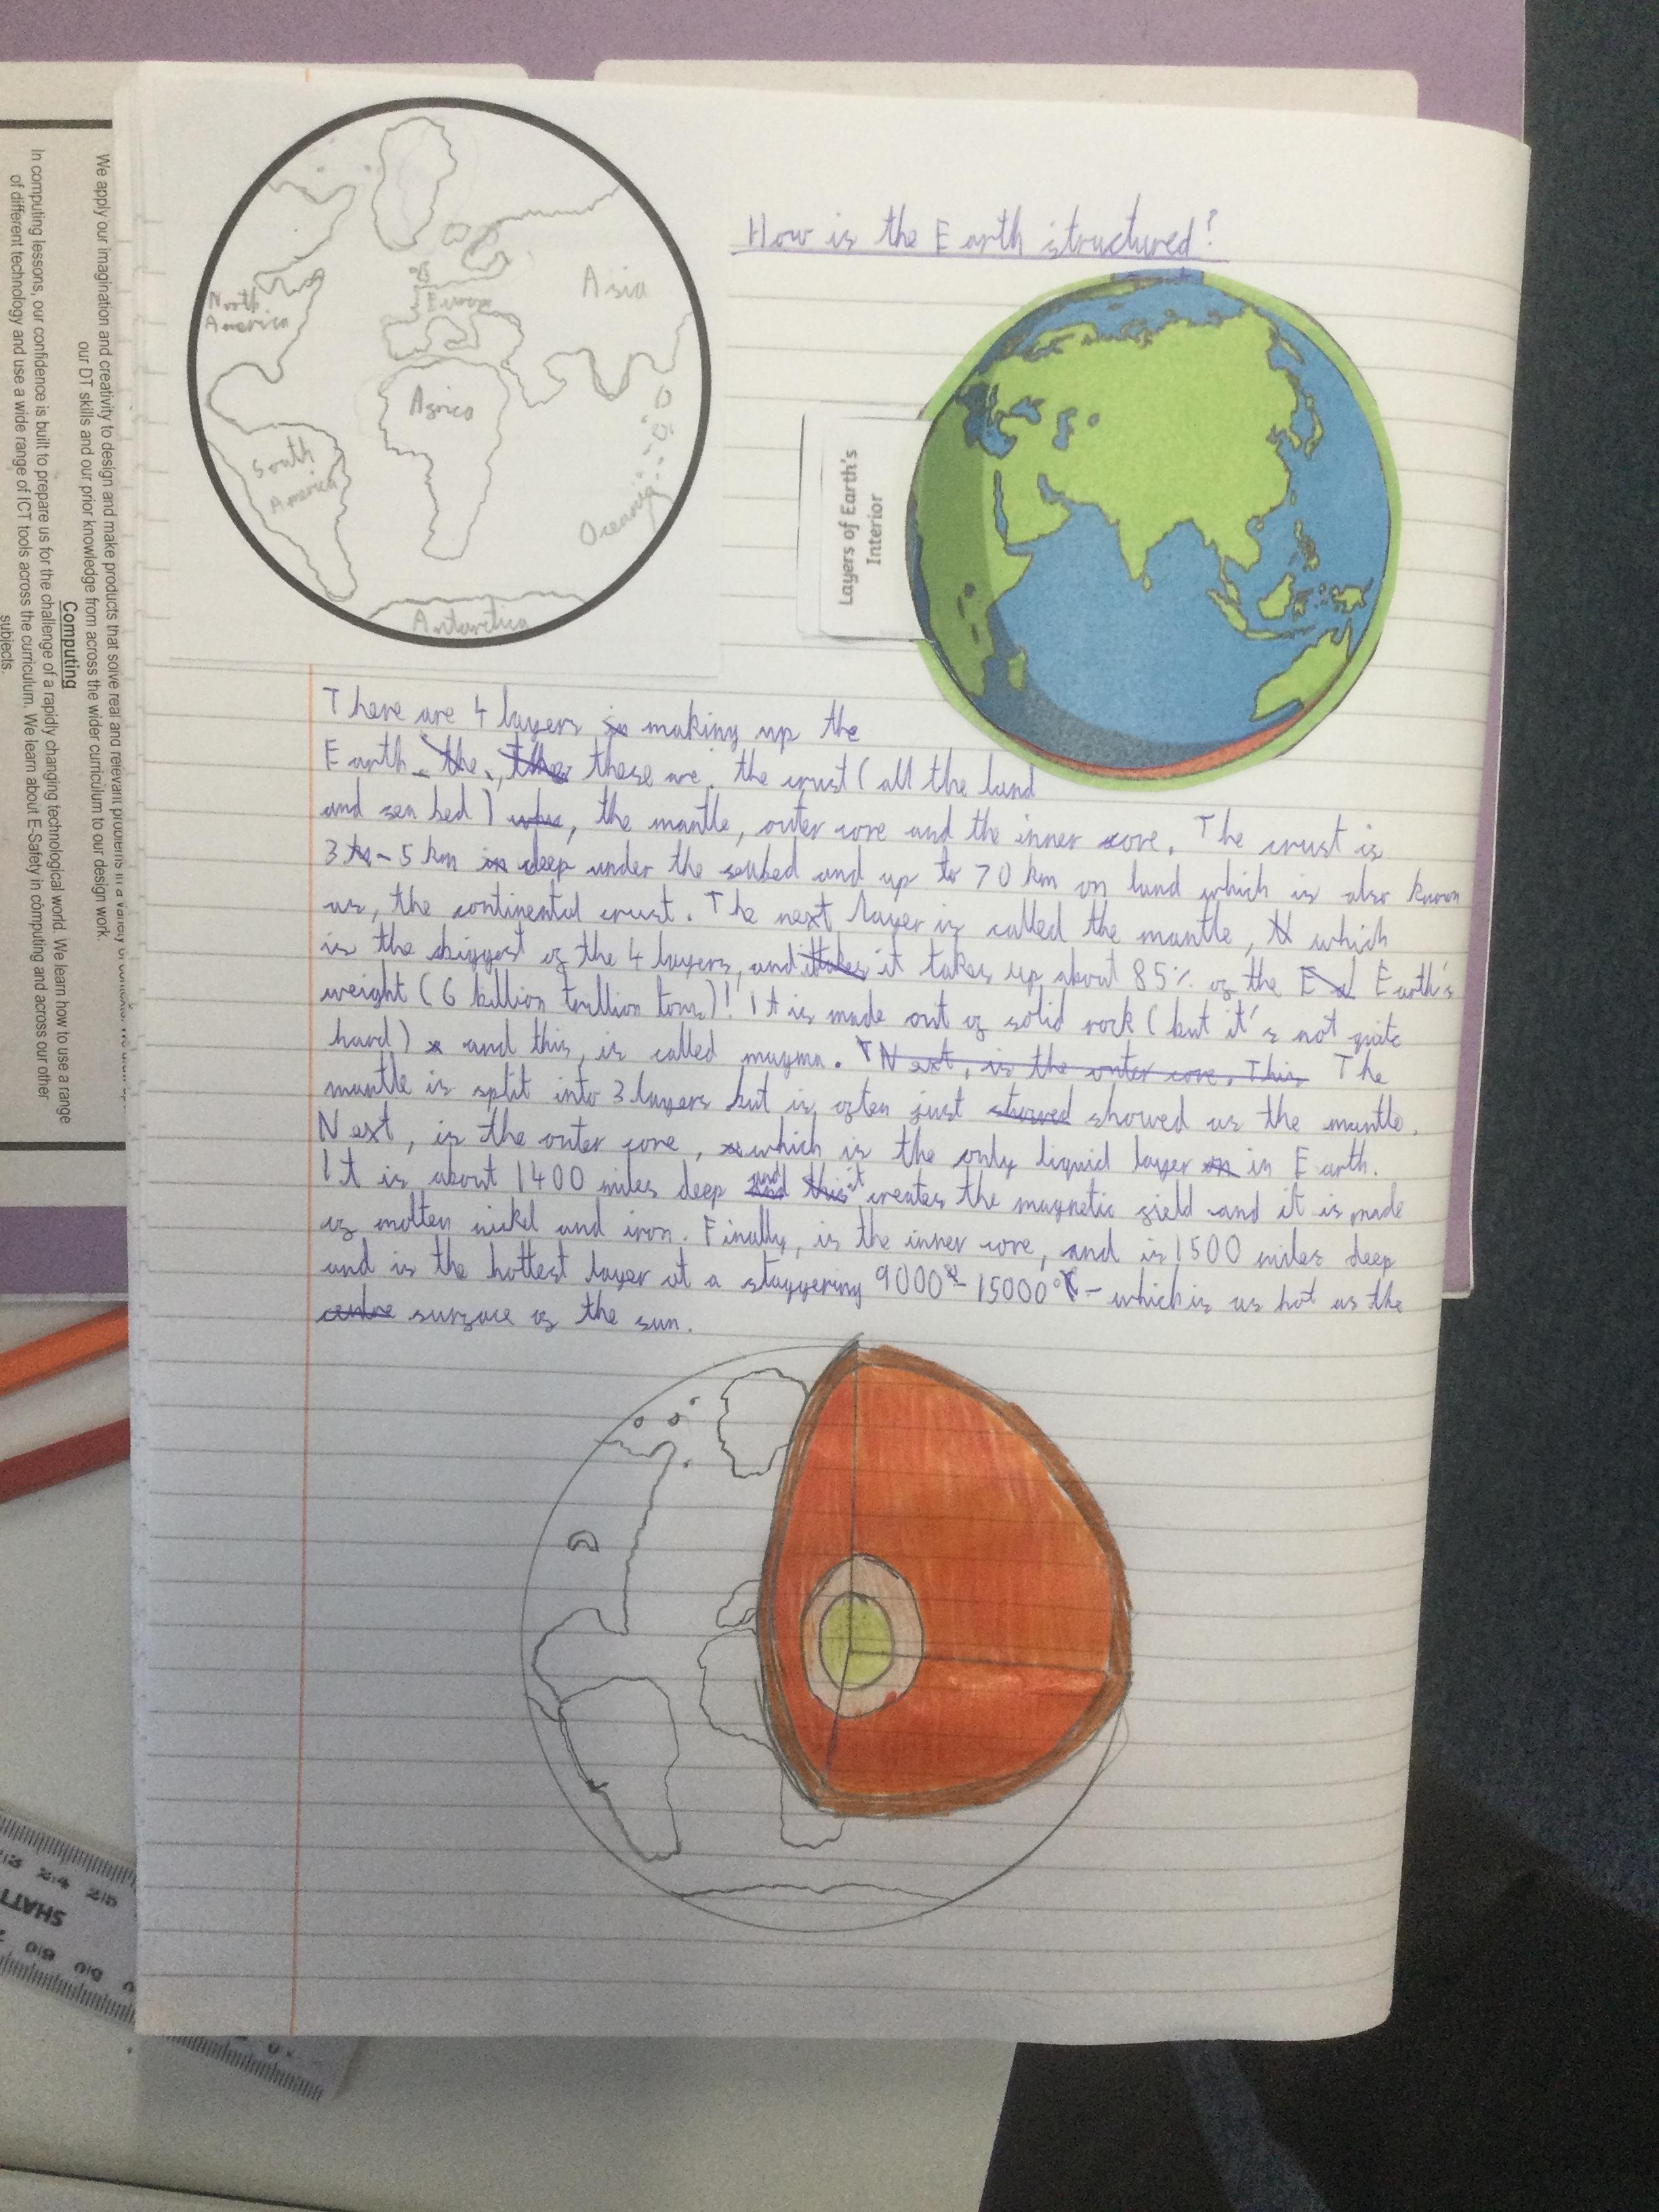 How is the Earth structured?
North
America
Europe
Asia
Africa
South
America
Oceania
Antarctica
Layers of Earth's
Interior
There are 4 layers making up the
Earth these are, the crust (all the land
and sea bed), the mantle, outer core and the inner core. The crust is
3 - 5 km under the seabed and up to 70 km on land which is also known
as, the continental crust. The next layer is called the mantle, which
is the biggest of the 4 layers, and it takes up about 85% of the Earth's
weight (6 billion trillion tons)! It is made out of solid rock (but it's not quite
hard) and this, is called magma. The
mantle is split into 3 layers but is often just showed as the mantle.
Next, is the outer core, which is the only liquid layer in Earth.
It is about 1400 miles deep and it creates the magnetic field and it is made
of molten nickel and iron. Finally, is the inner core, and is 1500 miles deep
and is the hottest layer at a staggering 9000° - 15000° - which is as hot as the
surface of the sun.
We apply our imagination and creativity to design and make products that solve real and relevant problems in a variety of
our DT skills and our prior knowledge from across the wider curriculum to our design work.
Computing
In computing lessons, our confidence is built to prepare us for the challenge of a rapidly changing technological world. We learn how to use a range
of different technology and use a wide range of ICT tools across the curriculum. We learn about E-Safety in computing and across our other
subjects.